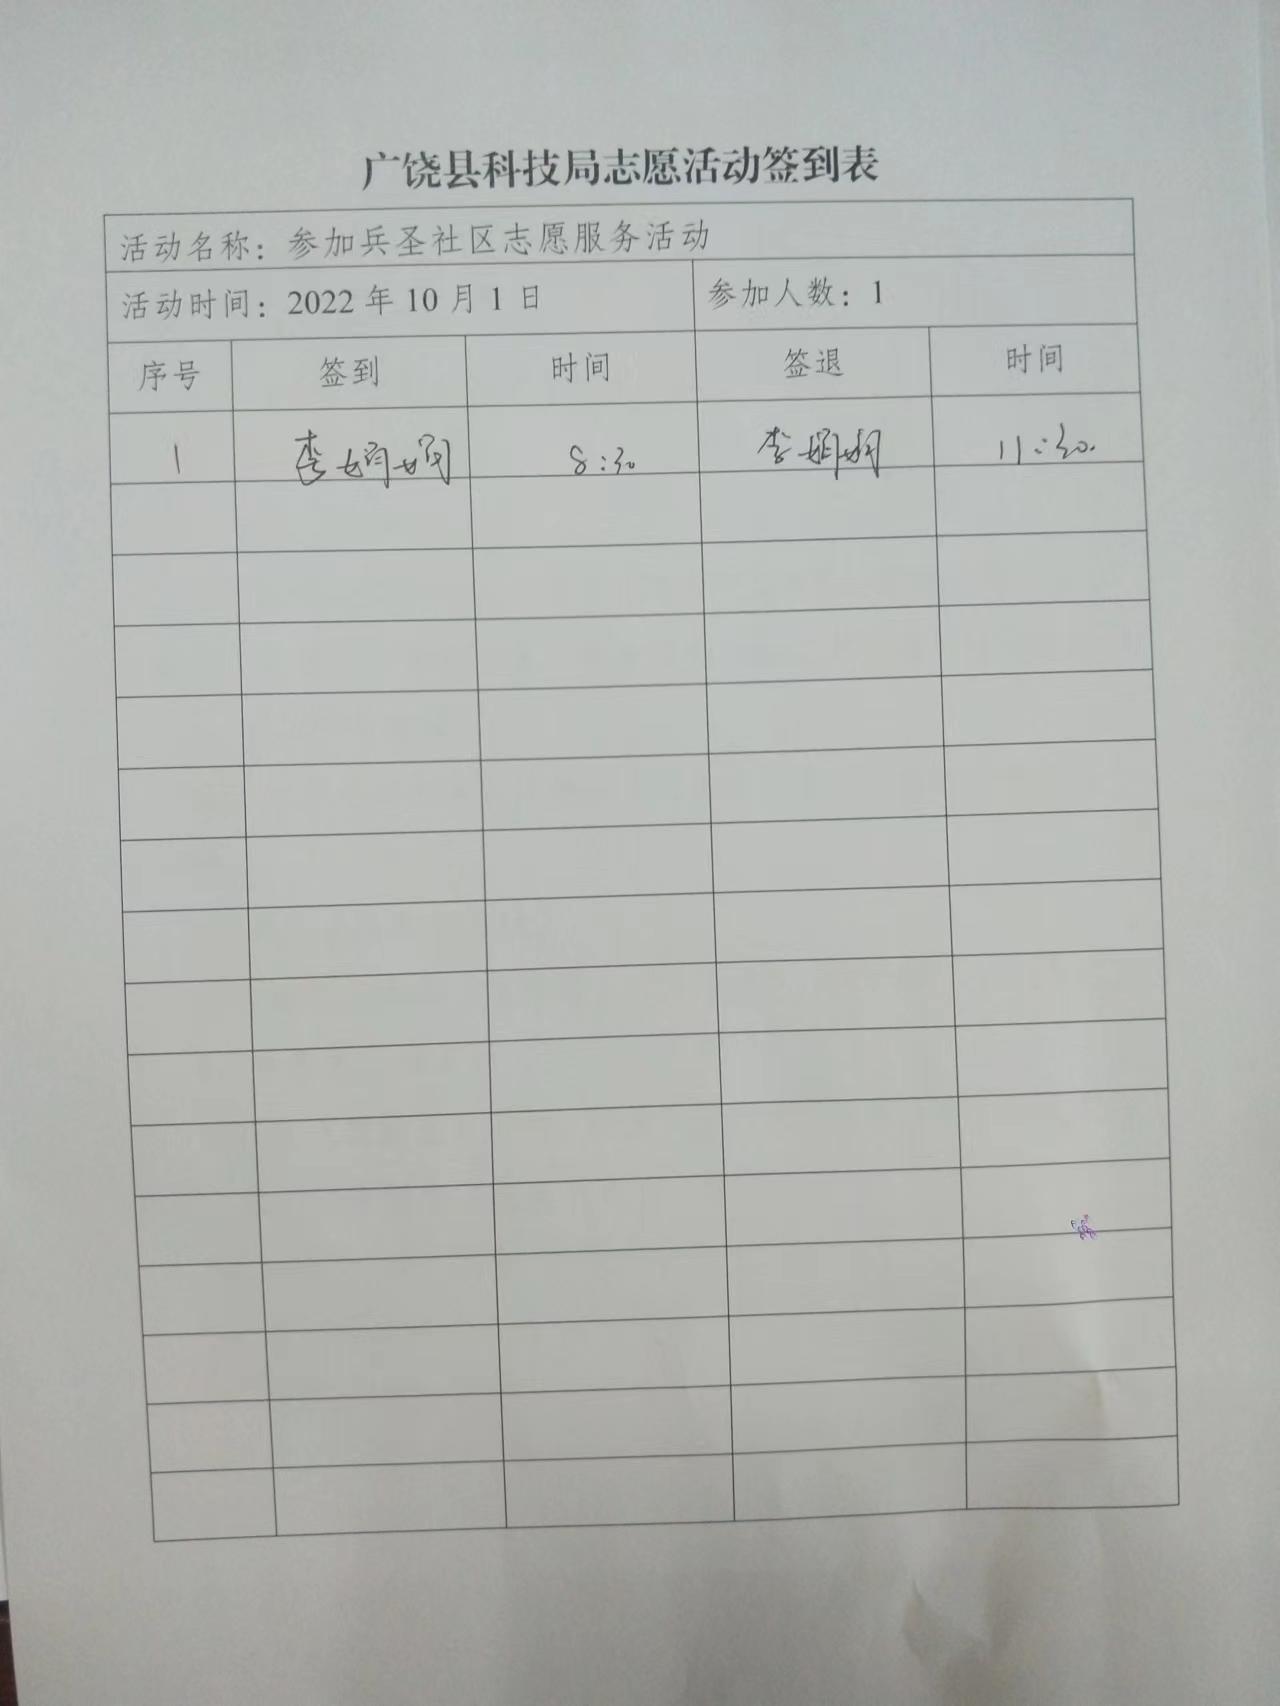 广饶县科技局志愿活动签到表
活动名称：参加兵圣社区志愿服务活动
活动时间：2022 年 10 月 1 日 参加人数：1
序号 签到 时间 签退 时间
1 李娟娟 8:30 李娟娟 11:30.